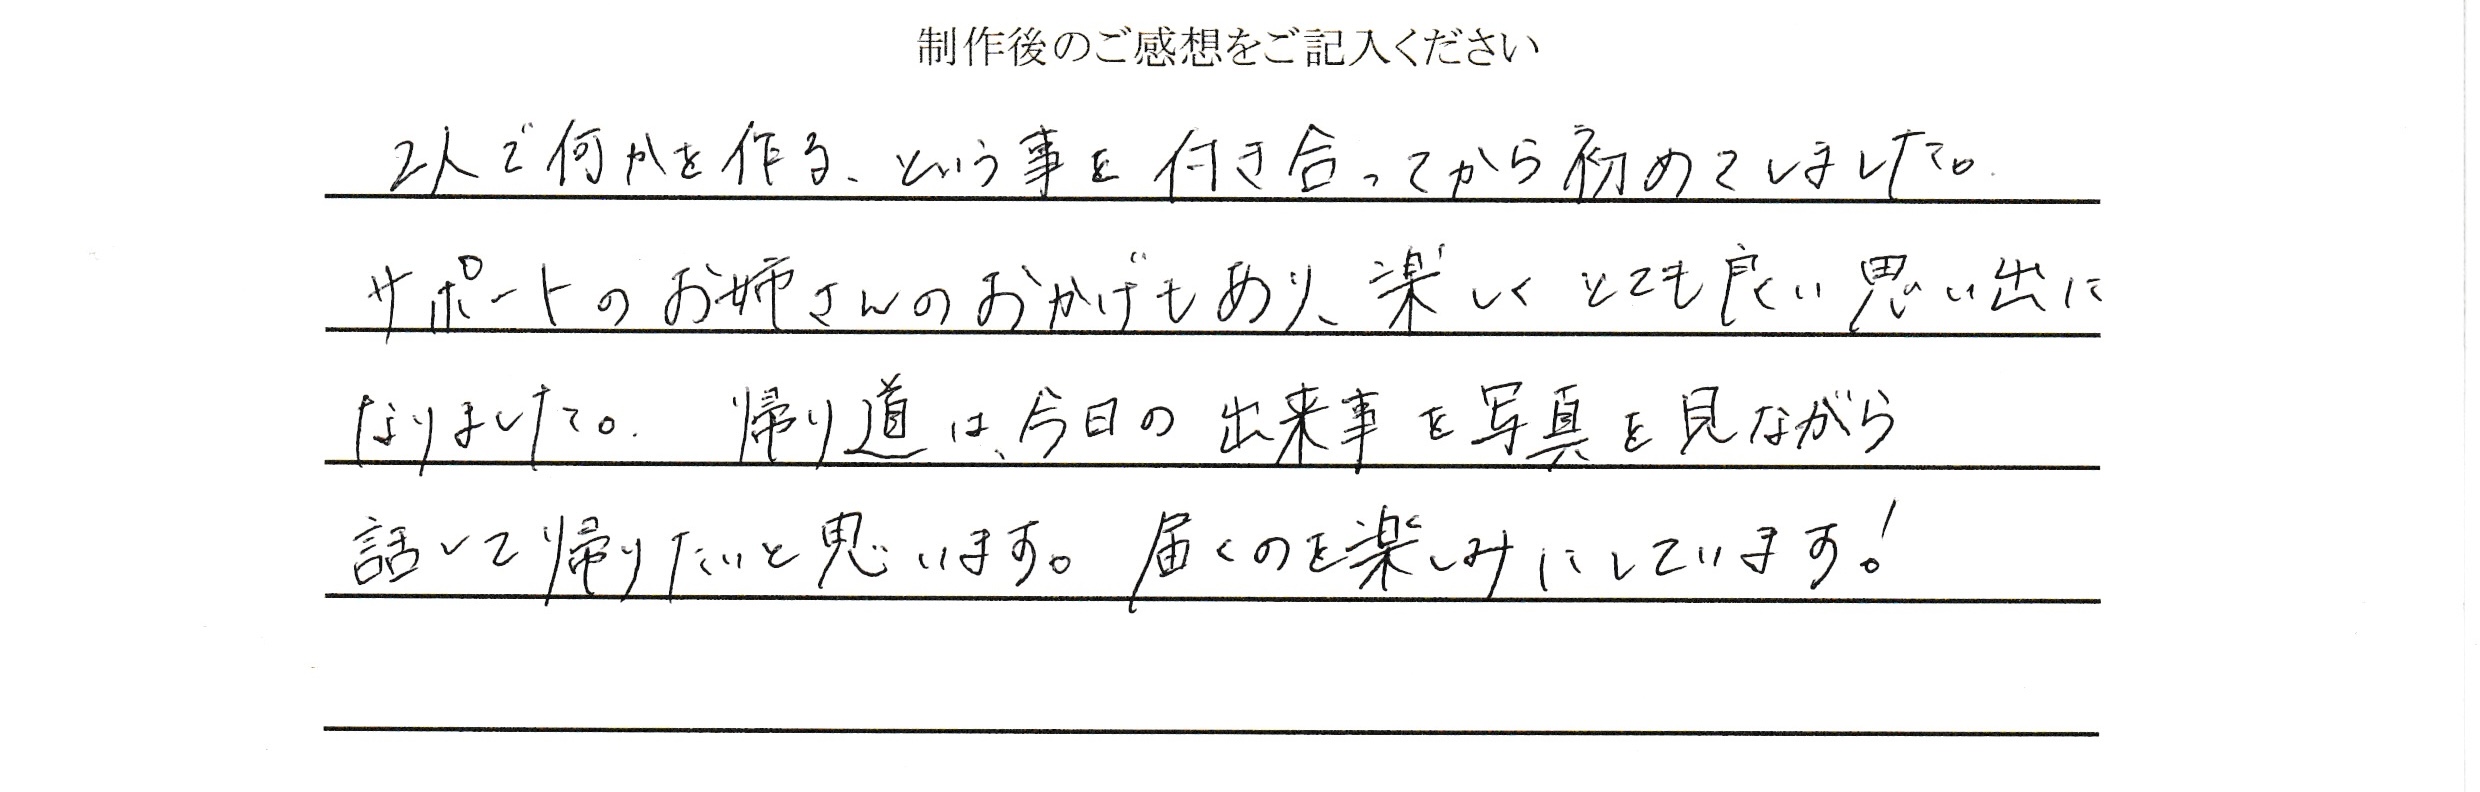 制作後のご感想をご記入ください
2人で何かを作る、という事を付き合ってから初めてしました。
サポートのお姉さんのおかげもあり、楽しくとても良い思い出に
なりました。 帰り道は、今日の出来事を写真を見ながら
話して帰りたいと思います。届くのを楽しみにしています!